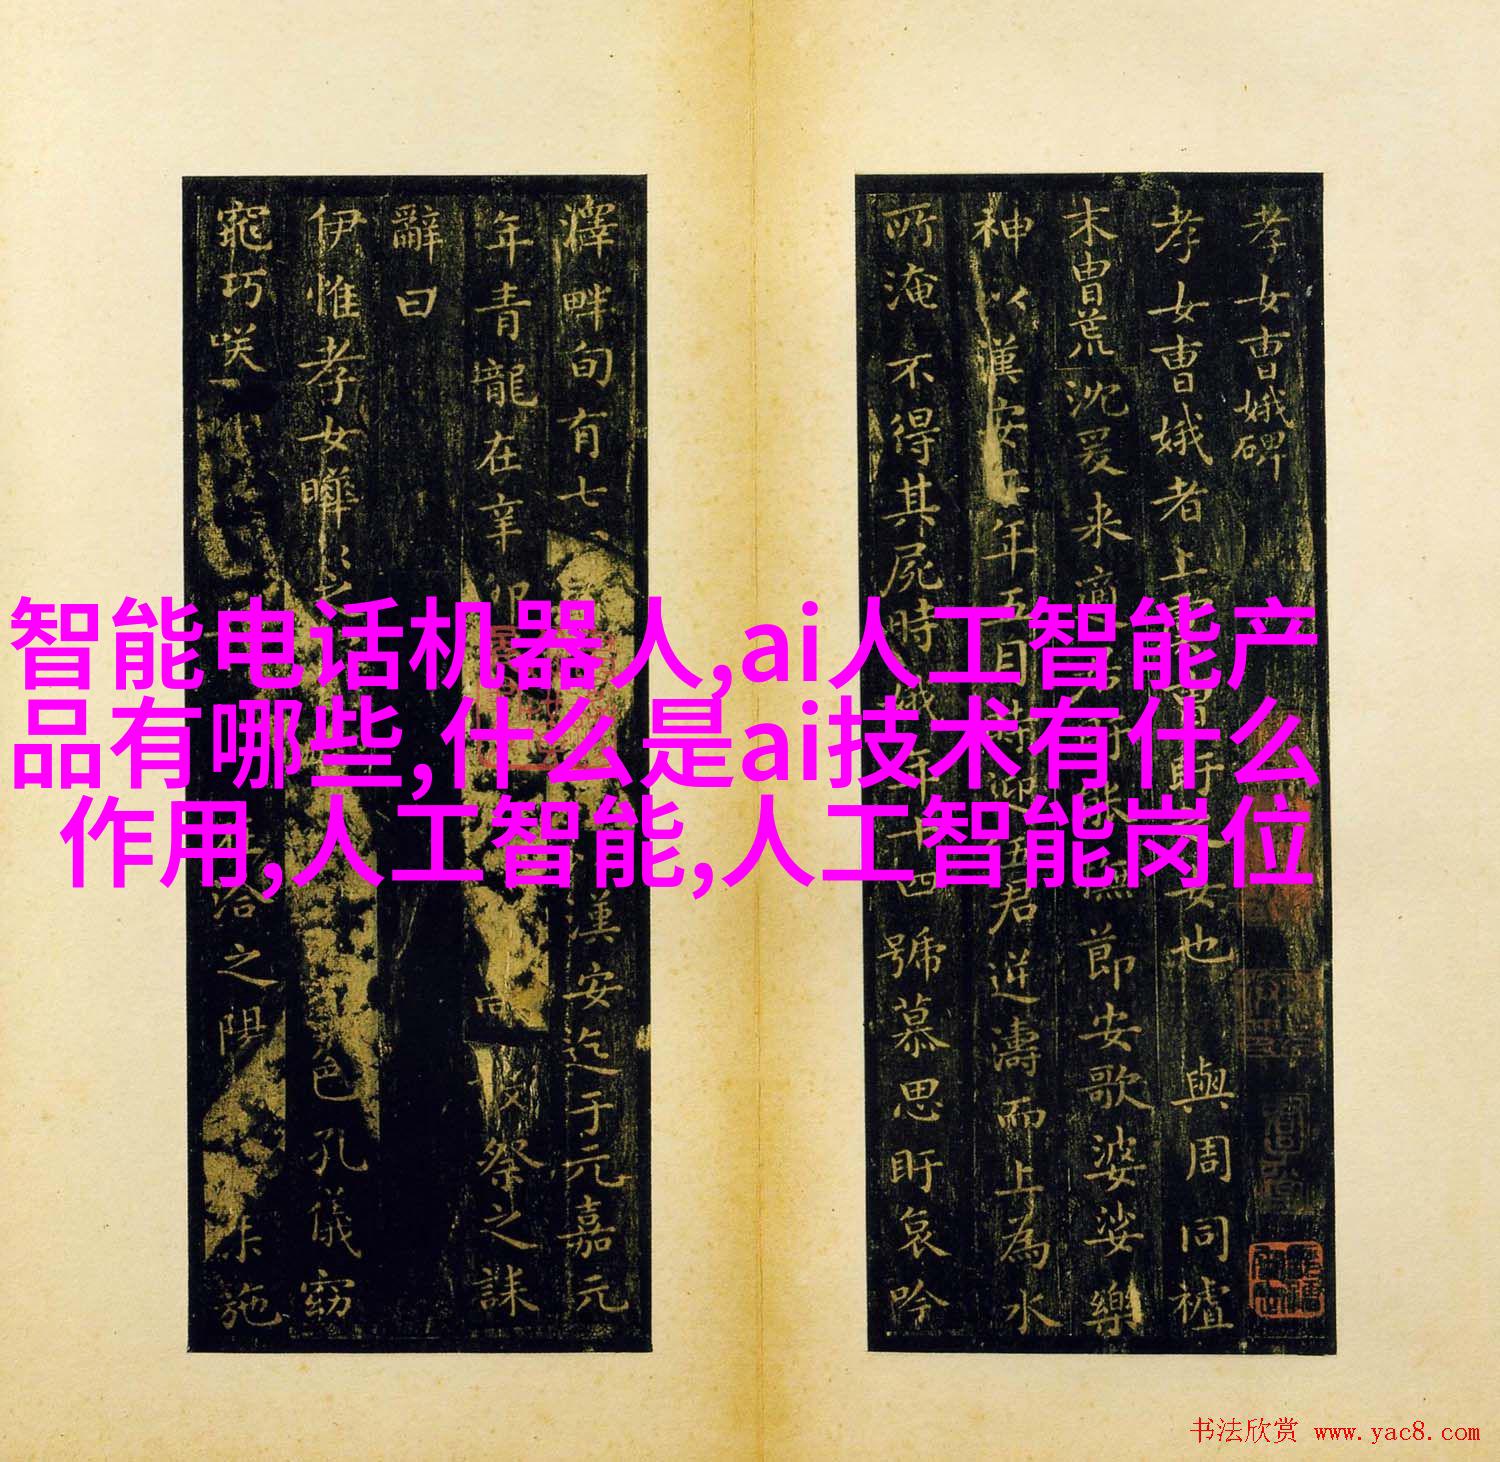 孝女曹娥碑
孝女曹娥者上虞曹盱之女也其先與周同祖
末胄荒沈爰来適
節安歌婆娑樂
神以漢安二年五月時迎伍君逆濤而上為水
所淹不得其屍時娥年十四號慕思盱哀吟
澤畔旬有七
漢安迄于元嘉元
年青龍在辛卯
祭之誄
辭曰
伊惟孝女曄
色孔儀窈
窕巧咲
洽之陽
施
智能电话机器人,ai人工智能产
品有哪些,什么是ai技术有什么
作用,人工智能,人工智能岗位
书法欣赏 www.yac8.com